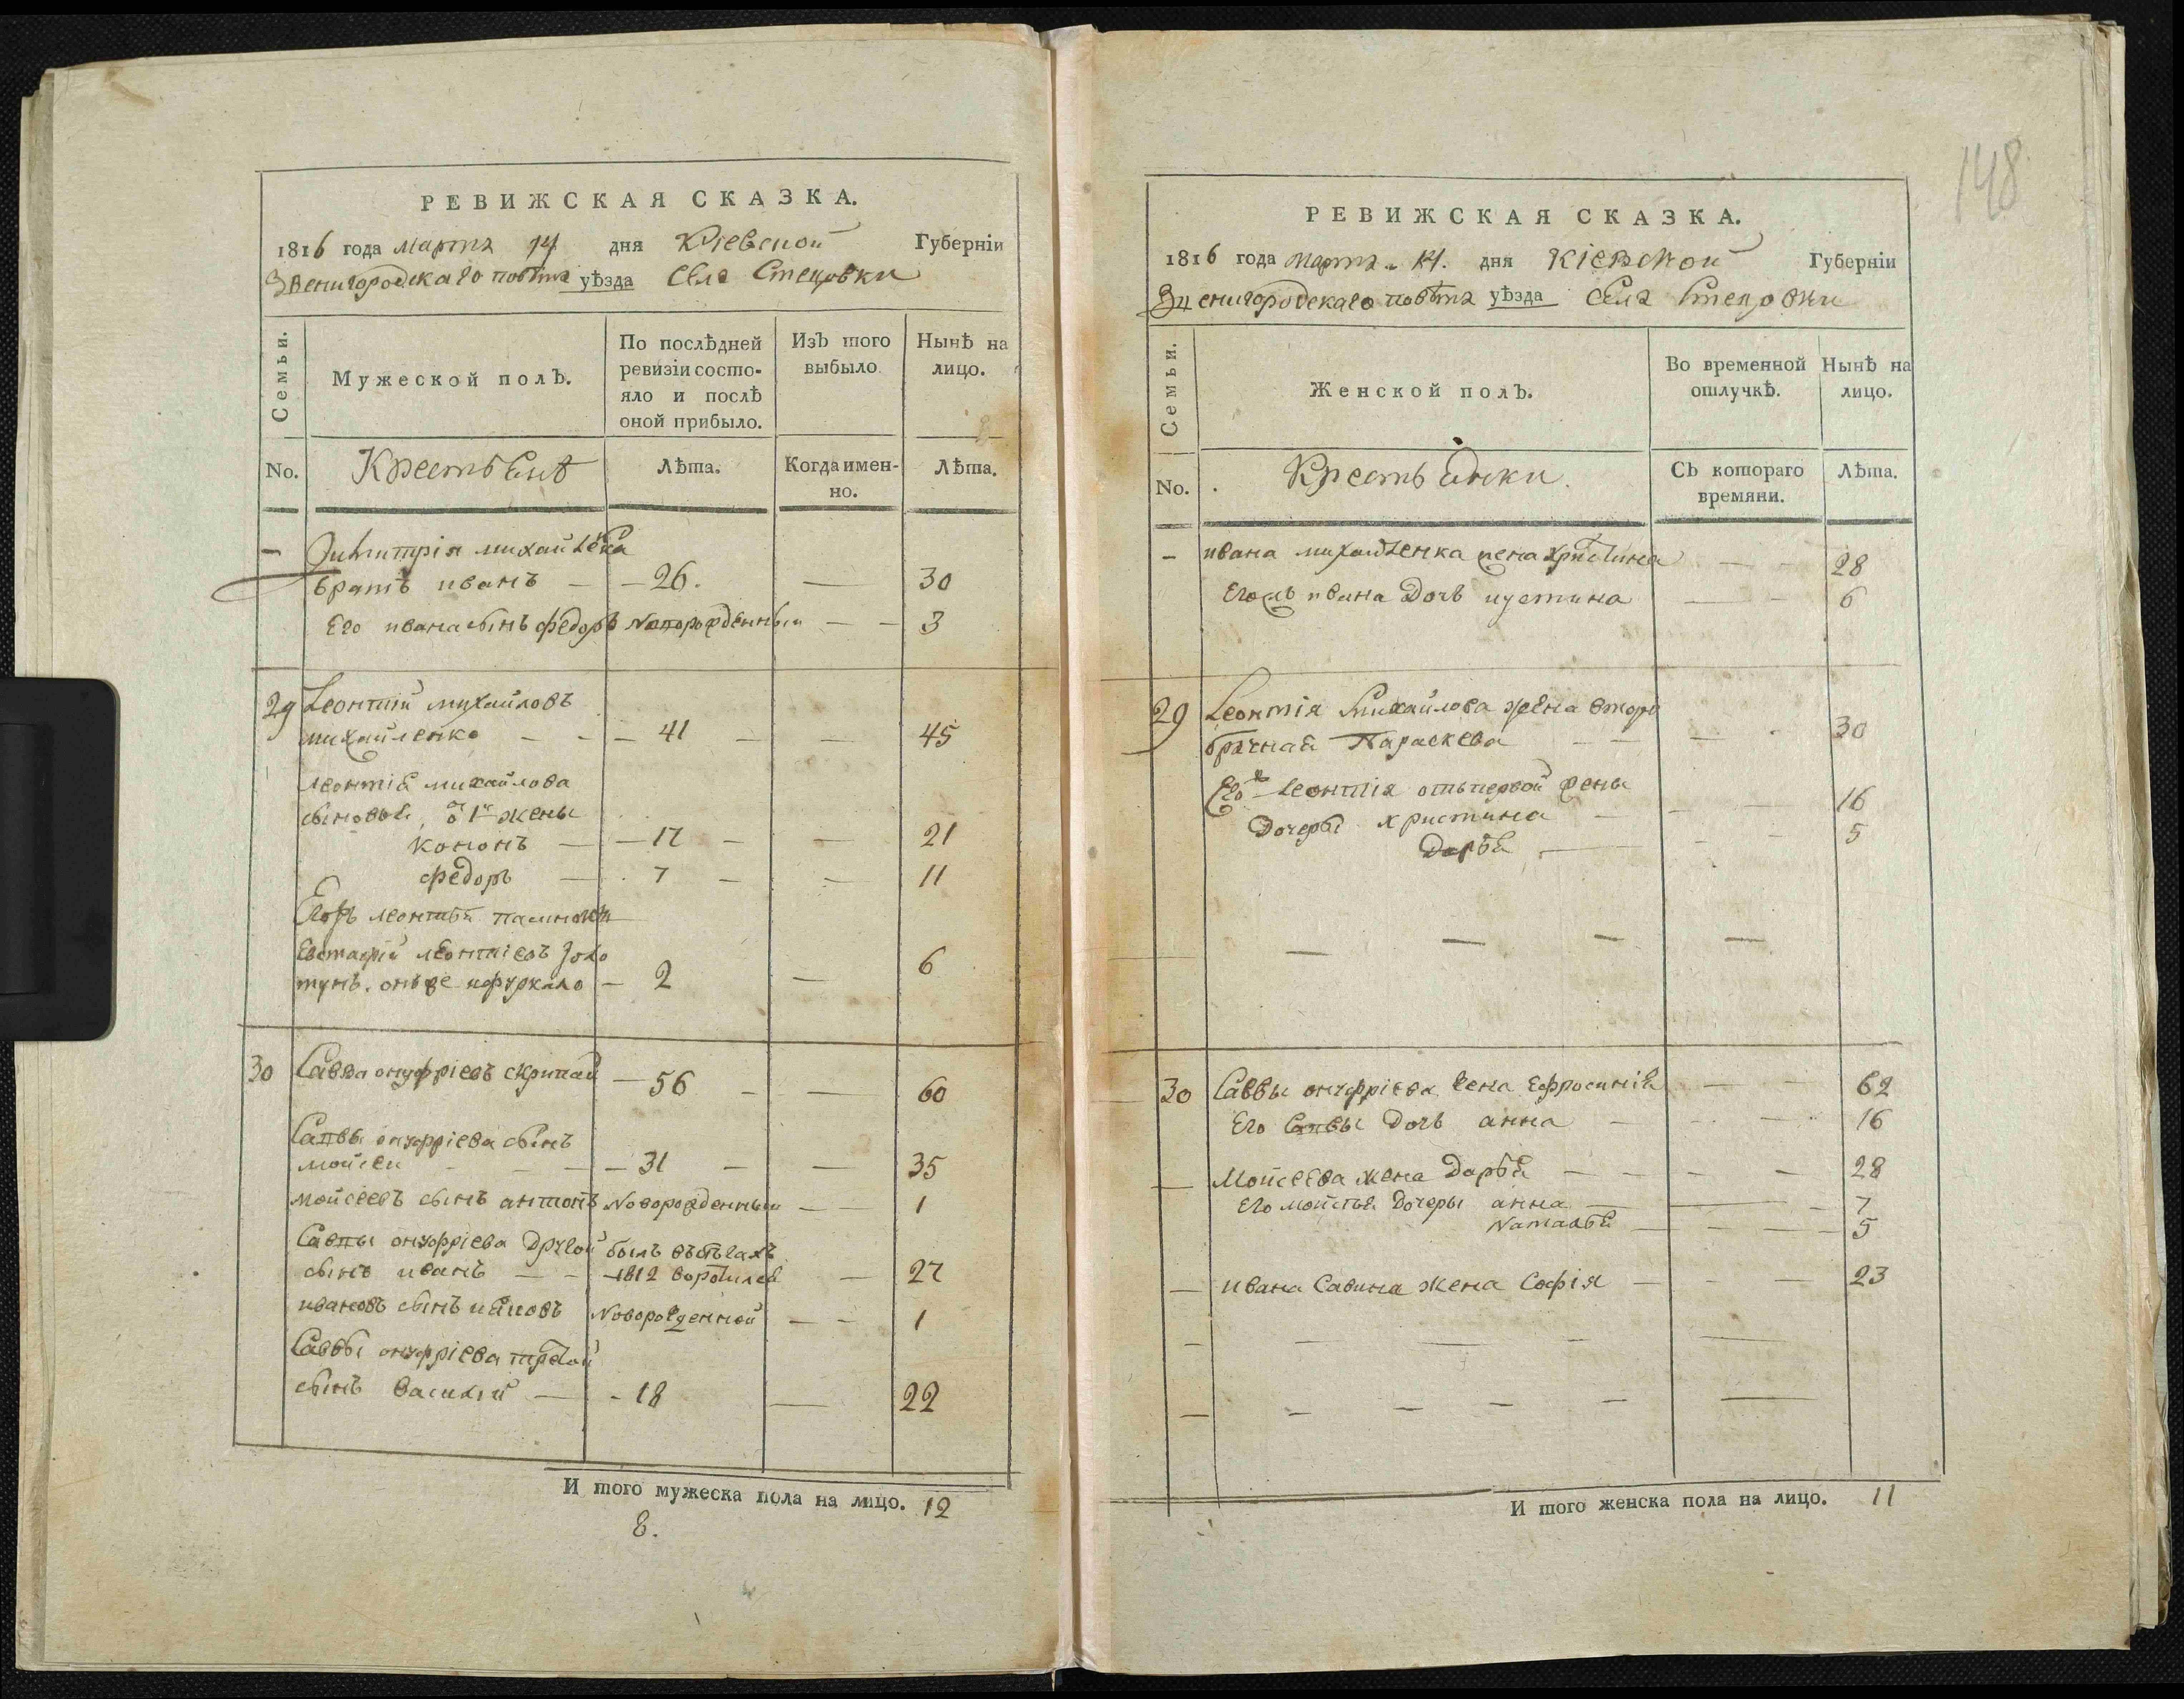 РЕВИЖСКАЯ СКАЗКА.
1816 года марта 14 дня Кіевской Губерніи
Звенигородскаго повѣта уѣзда села Стецовки
Семьи.
Мужеской полъ.
По послѣдней ревизіи состояло и послѣ оной прибыло.
Изъ того выбыло
Нынѣ на лицо.
No.
Крестьянѣ
Лѣта.
Когда именно.
Лѣта.
Димитрія михайленка
братъ иванъ — 26. — 30
Его ивана сынъ федоръ новорожденный — 3
29 Леонтій михайловъ
михайленко — 41 — 45
Леонтія михайлова
сыновья, от 1й жены
кононъ — 17 — 21
федоръ — 7 — 11
Егожъ леонтія пасинокъ
Евстафій леонтіевъ
онъже — 2 — 6
30 Савва онуфріевъ скрипай — 56 — 60
Саввы онуфріева сынъ
мойсей — 31 — 35
мойсеевъ сынъ антонъ новорожденный — 1
Саввы онуфріева другой былъ въ бѣгахъ
сынъ иванъ — 1812 воротился — 27
ивановъ сынъ яковъ новорожденной — 1
Саввы онуфріева третой
сынъ василій — 18 — 22
И того мужеска пола на лицо. 12
8.
148
РЕВИЖСКАЯ СКАЗКА.
1816 года марта 14. дня Кіевской Губерніи
Звенигородскаго повѣта уѣзда села Стецовки
Семьи.
Женской полъ.
Во временной отлучкѣ.
Нынѣ на лицо.
No.
Крестьянки.
Съ котораго времяни.
Лѣта.
— ивана михайленка жена христина — 28
Егожъ ивана дочь иустина — 6
29 Леонтія михайлова жена второ
брачная Параскева — 30
Егожъ леонтія отъ первой жены
дочеры христина — 16
дарья — 5
30 Саввы онуфріева жена Ефросинія — 62
Его саввы дочь анна — 16
— Мойсеева жена дарья — 28
Его мойсея дочеры анна — 7
наталья — 5
— ивана савина жена софія — 23
И того женска пола на лицо. 11